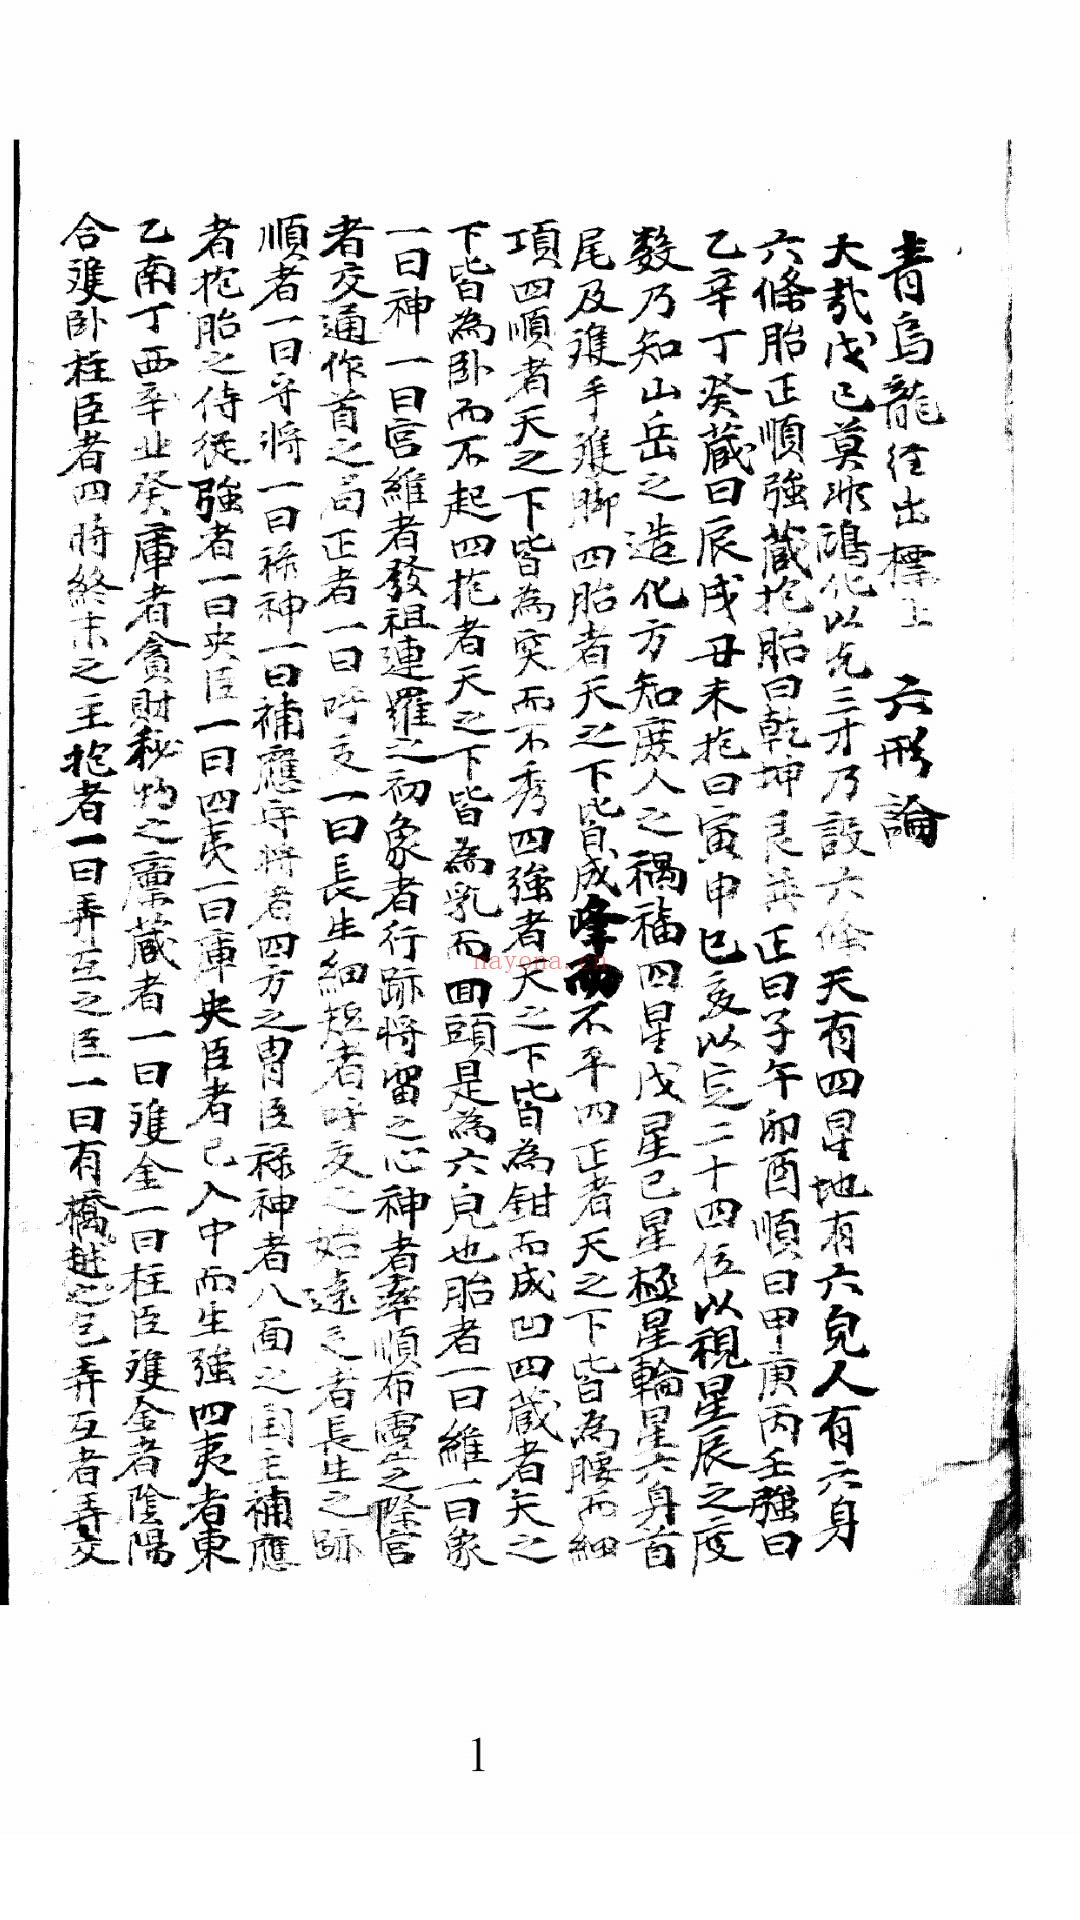 青烏龍經出標上 六形論
大哉戊己莫非鴻化以先三才乃設六條天有四星地有六皃人有六身
六條胎正順強藏抱胎曰乾坤艮巽正曰子午卯酉順曰甲庚丙壬強曰
乙辛丁癸藏曰辰戌丑未抱曰寅申巳亥以定二十四位以視星辰之度
數乃知山岳之造化方知庶人之禍福四星戊星己星極星輪星六身首
尾及雙手雙脚四胎者天之下皆成峰而不平四正者天之下皆為腰而細
項四順者天之下皆為突而不秀四強者天之下皆為鉗而成凹四藏者天之
下皆為卧而不起四抱者天之下皆為乳而囬頭是為六皃也胎者一曰維一曰象
一曰神一曰官維者發祖連羅之初象者行跡將留之心神者率順布靈之際官
者交通作首之局正者一曰呼一曰長生細短者呼交之始遠者長生之跡
順者一曰守將一曰祿神一曰補應守將者四方之胄臣祿神者八面之主補應
者抱胎之侍從強者一曰央臣一曰四夷一曰庫央臣者己入中而生強四夷者東
乙南丁西辛北癸庫者貪財秘物之廩藏者一曰雙金一曰柱臣雙金者陰陽
合雙卧柱臣者四時終末之主抱者一曰弄互之臣一曰有橋越之乞弄互者弄交
nayona.cn
1